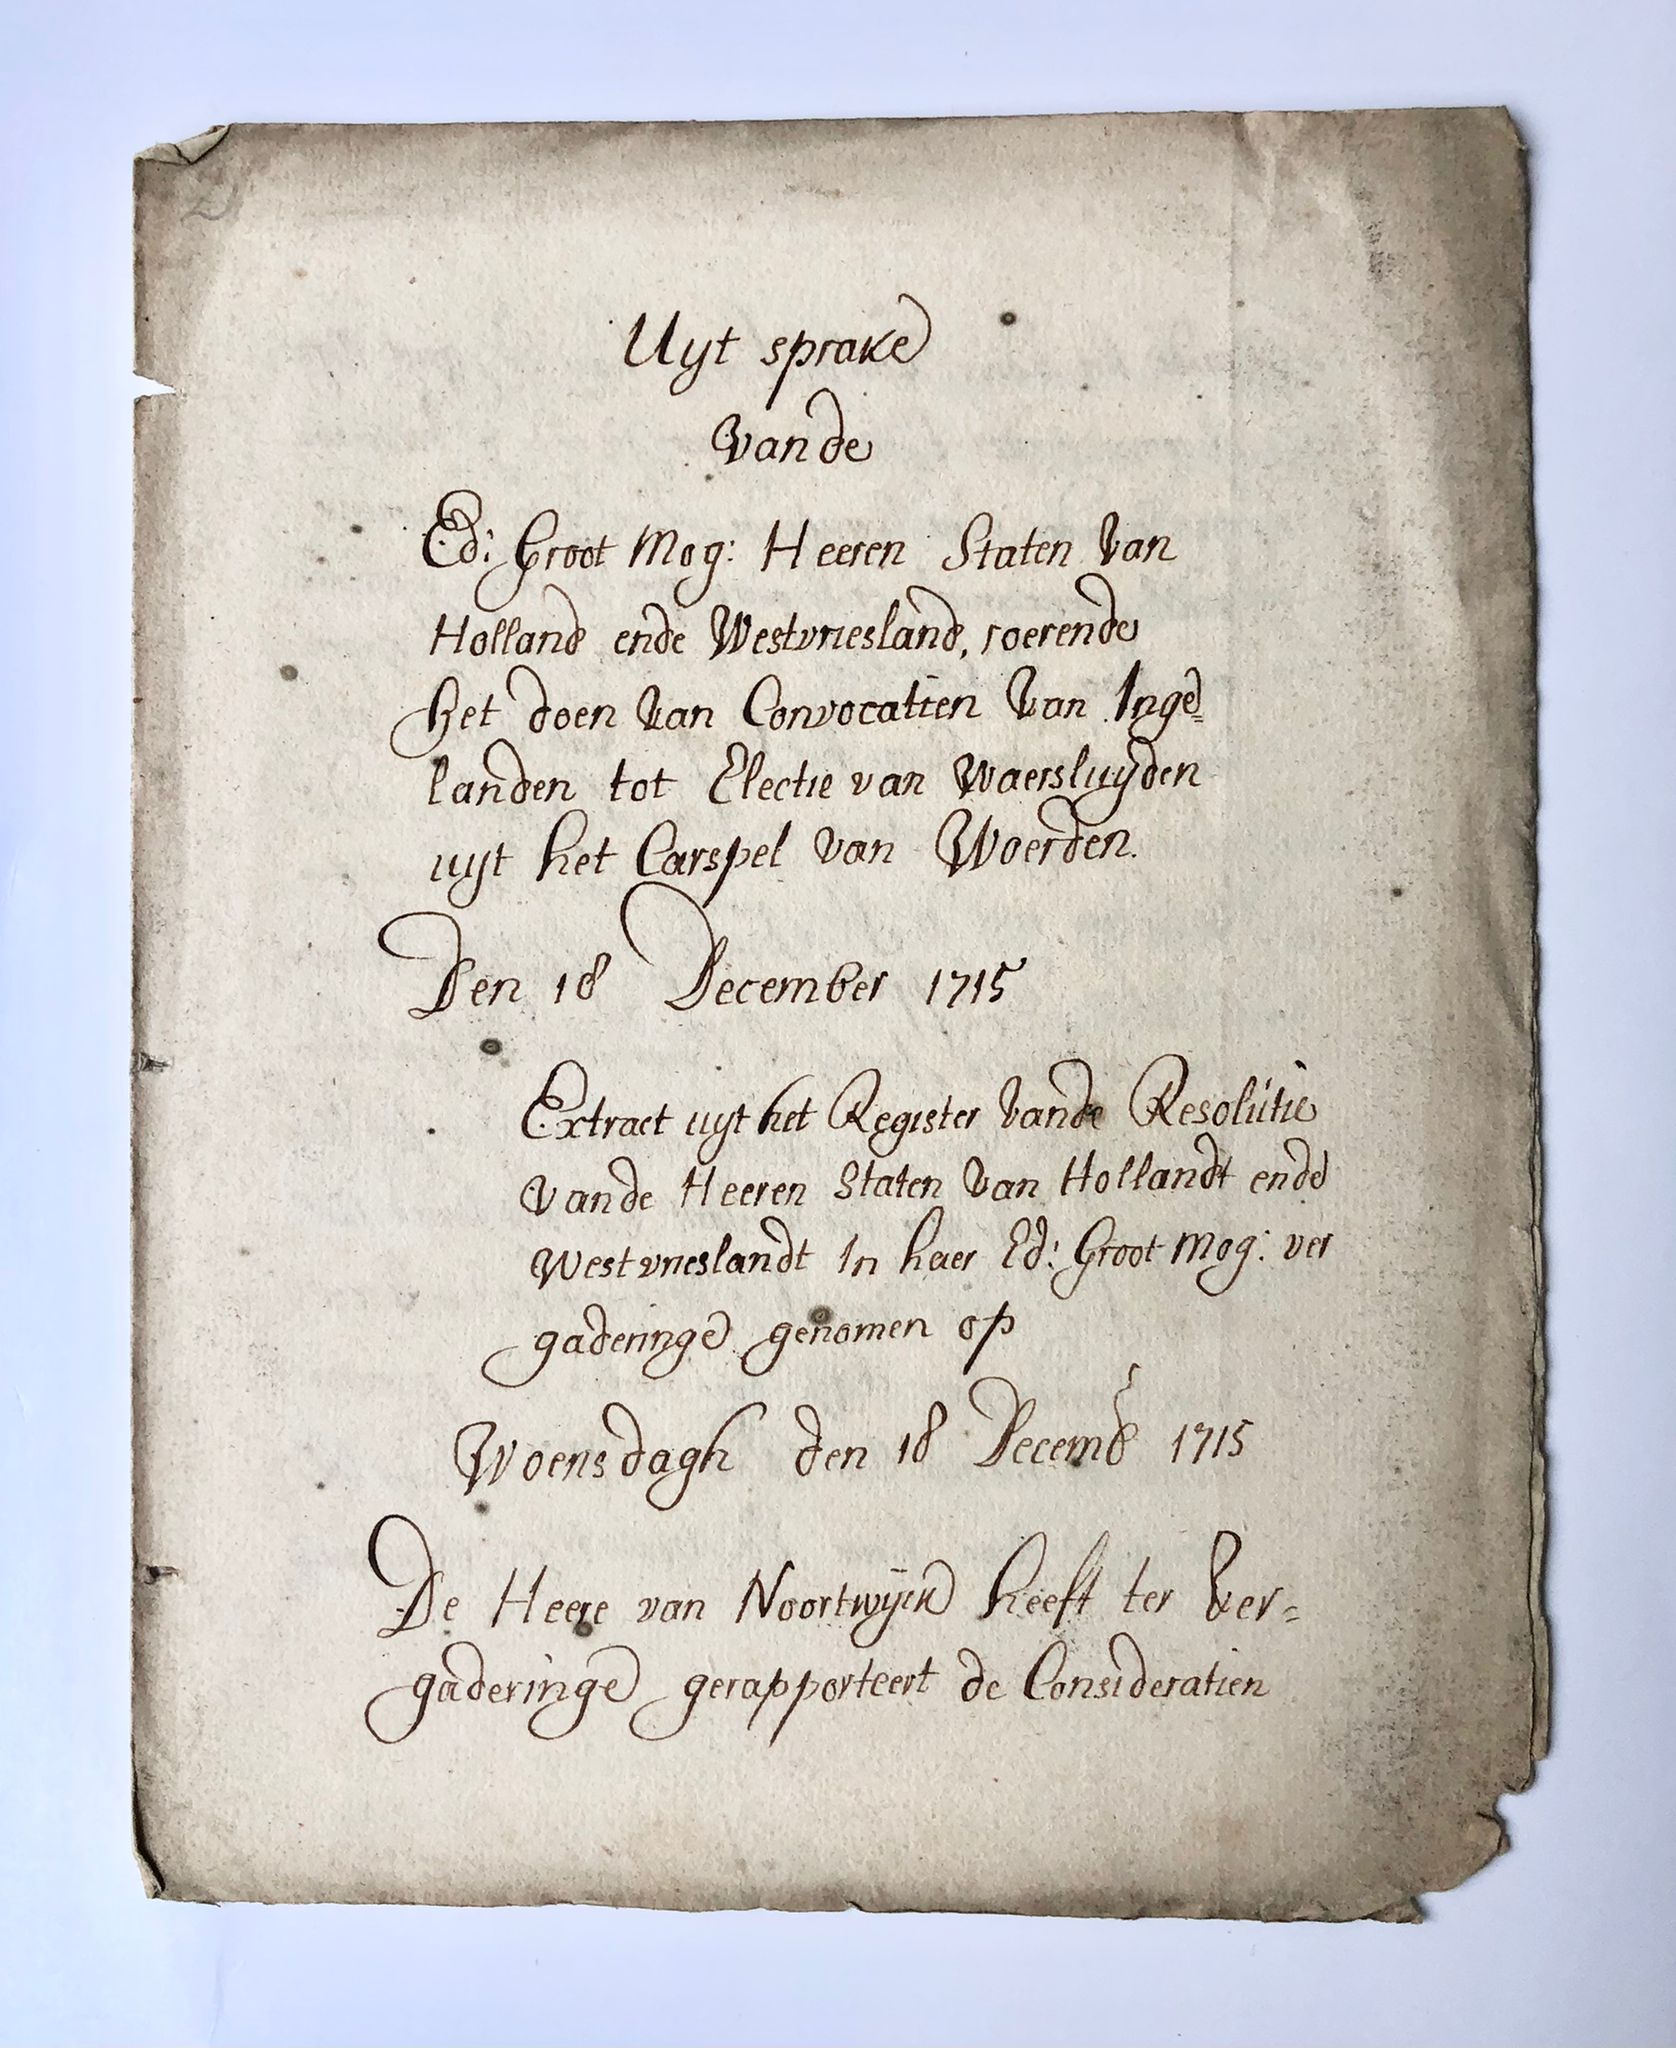 Uyt sprake
vande
Ed: Groot Mog: Heeren Staten van
Holland ende Westvriesland, roerende
het doen van Convocatien van Inge=
landen tot Electie van Waersluyden
uyt het Carspel van Woerden.
Den 18 December 1715
Extract uyt het Register vande Resolutie
vande Heeren Staten van Hollandt ende
Westvrieslandt In haer Ed: Groot Mog: ver
gaderinge genomen op
Woensdagh den 18 Decemb 1715
De Heere van Noortwijck heeft ter ver=
gaderinge gerapporteert de Consideratien